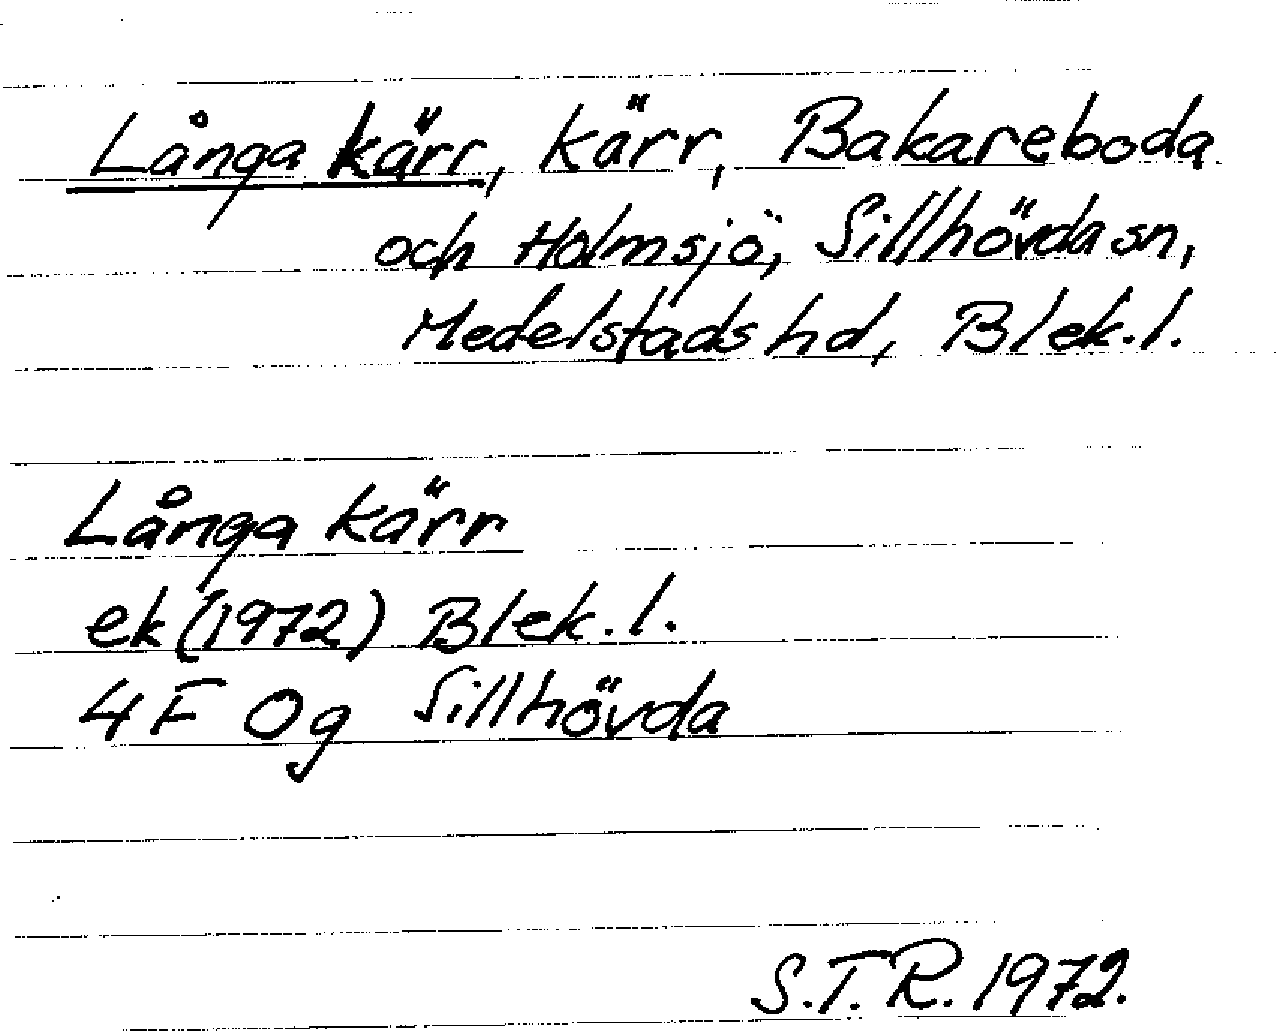 Långa kärr, kärr, Bakareboda
och Holmsjö, Sillhövda sn,
Medelstads hd, Blek.l.
Långa kärr
ek (1972) Blek.l.
4F 0g Sillhövda
S.T.R. 1972.